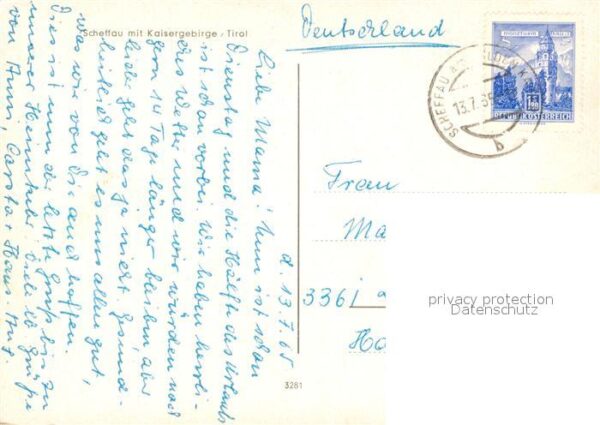 Scheffau mit Kaisergebirge, Tirol
Deutschland
MÜNZTURM HALL
1.50
REPUBLIK ÖSTERREICH
SCHEFFAU AM WILDEN KAISER
13.7.65
b
d. 13.7.65
Liebe Mama! Nun ist schon
Dienstag und die Hälfte des Urlaubs
ist schon vorbei. Wir haben herrli-
ches Wetter und wir würden noch
gern 14 Tage länger bleiben aber
leider geht das ja nicht. Gesund-
heitlich geht es uns allen gut,
was wir von Dir auch hoffen.
Dies ist nun der letzte Gruß bis zu
unserer Heimkehr. Viele lb Grüße
von Anni, Carsta + Hans.
Frau
Ma
3361
Ha
privacy protection
Datenschutz
3281